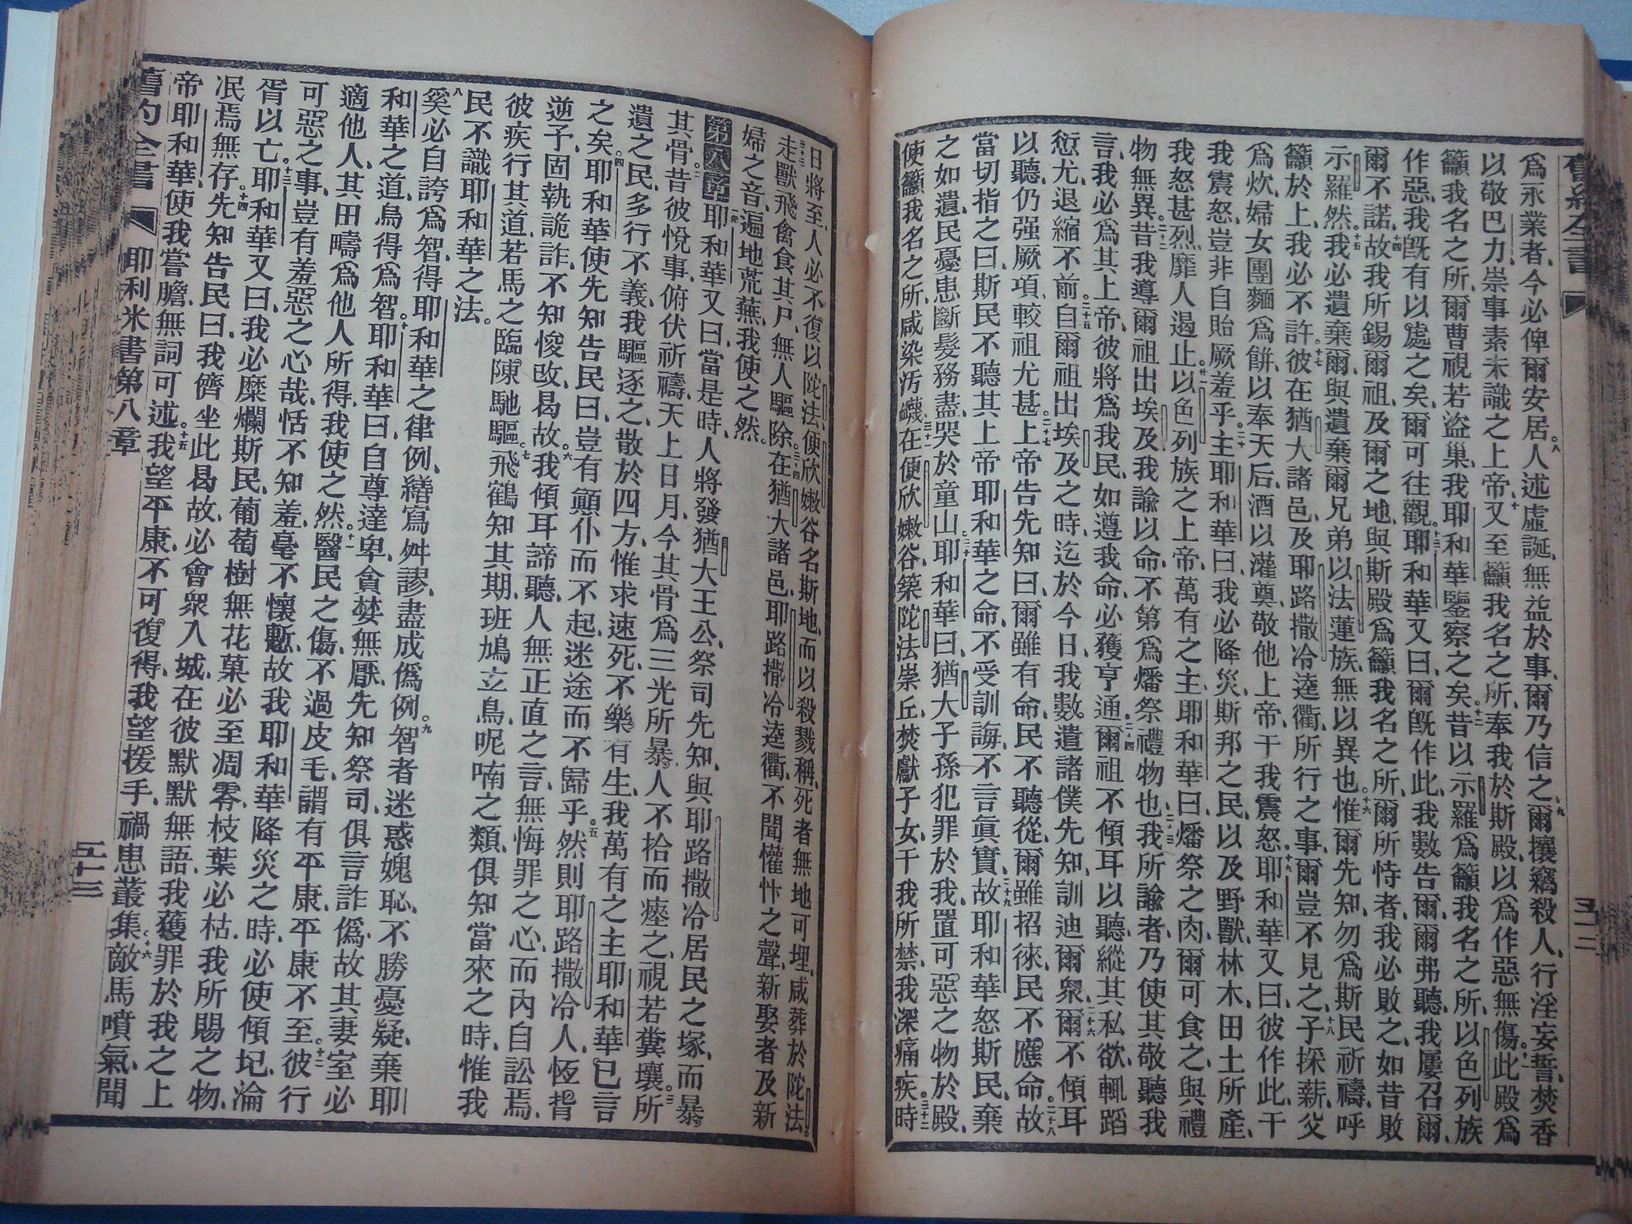 爲永業者、今必俾爾安居。八人述虛誕、無益於事、爾乃信之、九爾攘竊殺人、行淫妄誓、焚香
以敬巴力、崇事素未識之上帝、十又至籲我名之所、奉我於斯殿、以爲作惡無傷、十一此殿爲
籲我名之所、爾曹視若盜巢、我耶和華鑒察之矣。十二昔以示羅爲籲我名之所、以色列族
作惡、我旣有以處之矣、爾可往觀。十三耶和華又曰、爾旣作此、我數告爾、爾弗聽、我屢召爾、
爾不諾、十四故我所錫爾祖及爾之地、與斯殿爲籲我名之所、爾所恃者、我必敗之、如昔敗
示羅然、十五我必遺棄爾、與遺棄爾兄弟以法蓮族無以異也。十六惟爾先知、勿爲斯民祈禱、呼
籲於上、我必不許、十七彼在猶大諸邑、及耶路撒冷逵衢、所行之事、爾豈不見之、十八子採薪、父
爲炊、婦女團麵爲餅、以奉天后、酒以灌奠、敬他上帝、干我震怒。十九耶和華又曰、彼作此、干
我震怒、豈非自貽厥羞乎、二十主耶和華曰、我必降災斯邦之民、以及野獸林木、田土所產、
我怒甚烈、靡人遏止。二十一以色列族之上帝、萬有之主耶和華曰、燔祭之肉、爾可食之、與禮
物無異、二十二昔我導爾祖出埃及、我諭以命、不第爲燔祭禮物也、二十三我所諭者、乃使其敬聽我
言、我必爲其上帝、彼將爲我民、如遵我命、必獲亨通、二十四爾祖不傾耳以聽、縱其私欲、輒蹈
愆尤、退縮不前、二十五自爾祖出埃及之時、迄於今日、我數遣諸僕先知、訓迪爾衆、二十六爾不傾耳
以聽、仍强厥項、較祖尤甚。二十七上帝告先知曰、爾雖有命、民不聽從、爾雖招徠、民不應命、二十八故
當切指之曰、斯民不聽其上帝耶和華之命、不受訓誨、不言眞實、二十九故耶和華怒斯民、棄
之如遺、民憂患、斷髮務盡、哭於童山。三十耶和華曰、猶大子孫犯罪於我、置可惡之物於殿、
使籲我名之所、咸染汚衊、三十一在便欣嫩谷、築陀法崇丘、焚獻子女、干我所禁、我深痛疾。三十二時
日將至、人必不復以陀法、便欣嫩谷名斯地、而以殺戮稱、死者無地可埋、咸葬於陀法。
三十三走獸飛禽食其尸、無人驅除、三十四在猶大諸邑、耶路撒冷逵衢、不聞懽忭之聲、新娶者及新
婦之音、遍地荒蕪、我使之然。
第八章耶和華又曰、當是時、人將發猶大王公、祭司先知、與耶路撒冷居民之塚、而暴
其骨、二昔彼悅事、俯伏祈禱、天上日月、今其骨爲三光所暴、人不拾而瘞之、視若糞壤、三所
遺之民、多行不義、我驅逐之、散於四方、惟求速死、不樂有生、我萬有之主耶和華已言
之矣。四耶和華使先知告民曰、豈有顚仆而不起、迷途而不歸乎、五然則耶路撒冷人、恆背
逆予、固執詭詐、不知悛改、曷故、六我傾耳諦聽、人無正直之言、無悔罪之心、而內自訟焉、
彼疾行其道、若馬之臨陳馳驅、七飛鶴知其期、班鳩立鳥、呢喃之類、俱知當來之時、惟我
民不識耶和華之法。
八奚必自誇爲智、得耶和華之律例、繕寫舛謬、盡成僞例。九智者迷惑媿恥、不勝憂疑、棄耶
和華之道、烏得爲智、十耶和華曰、自尊逹卑、貪婪無厭、先知祭司、俱言詐僞、故其妻室必
適他人、其田疇爲他人所得、我使之然、十一醫民之傷、不過皮毛、謂有平康、平康不至、十二彼行
可惡之事、豈有羞惡之心哉、恬不知羞、毫不懷慙、故我耶和華降災之時、必使傾圮、淪
胥以亡、十三耶和華又曰、我必糜爛斯民、葡萄樹無花菓、必至凋零、枝葉必枯、我所賜之物、
泯焉無存。十四先知告民曰、我儕坐此曷故、必會衆入城、在彼默默無語、我獲罪於我之上
帝耶和華、使我嘗膽、無詞可述、十五我望平康、不可復得、我望援手、禍患叢集、十六敵馬噴氣、聞
舊約全書 耶利米書第八章 五十三